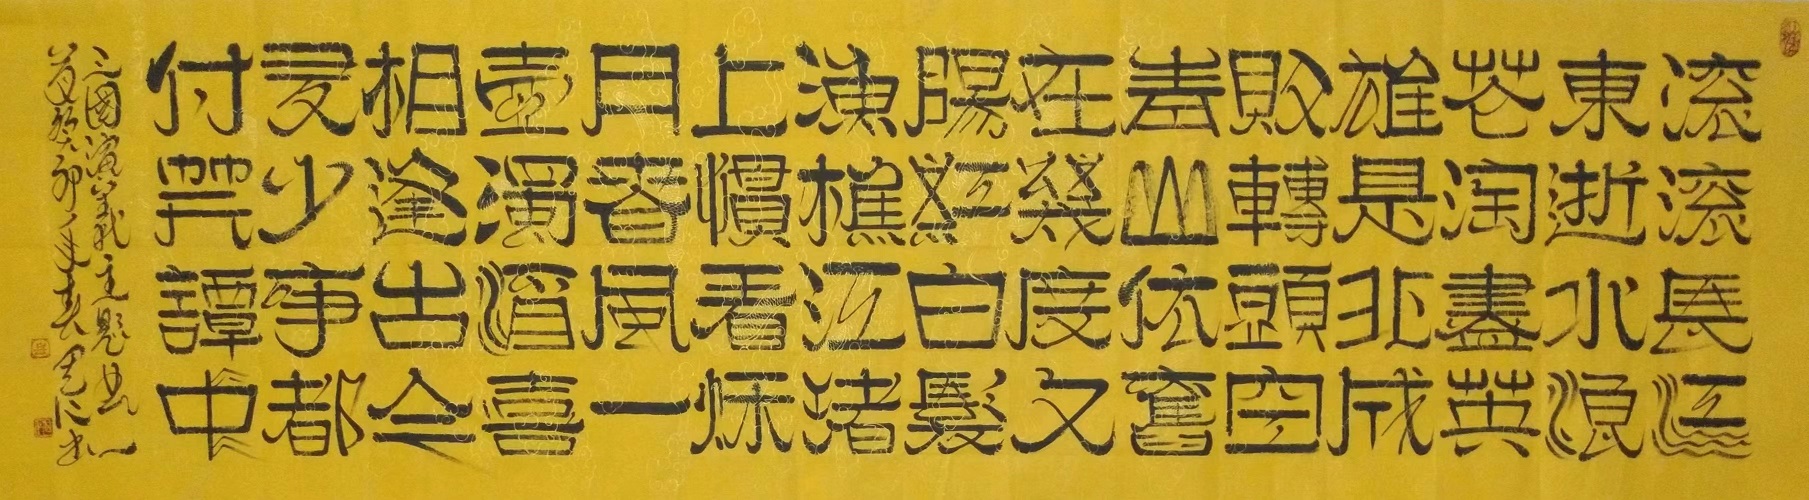 滚滚長江
東逝水浪
花淘盡英
雄是非成
敗轉頭空
青山依舊
在幾度夕
陽紅白髮
漁樵江渚
上慣看秋
月春風一
壺濁酒喜
相逢古今
多少事都
付笑譚中
三國演義主題曲一
首於癸卯年春